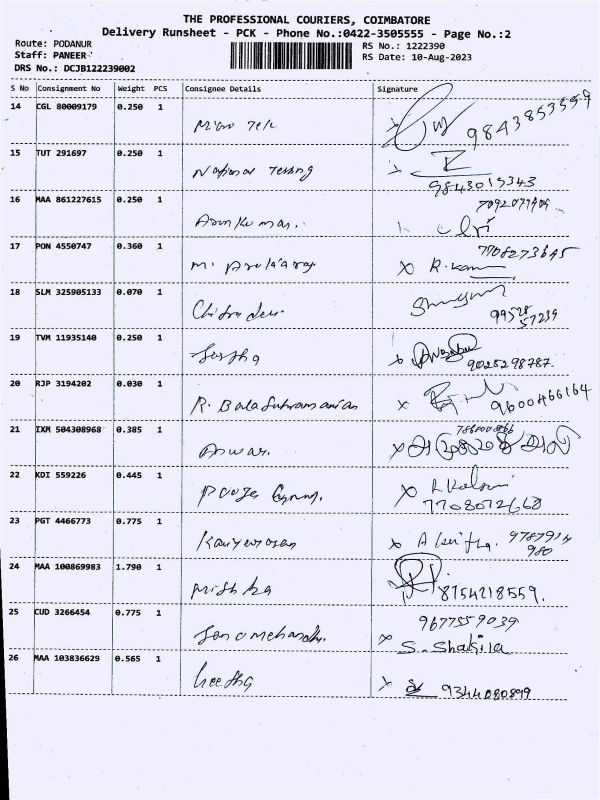 THE PROFESSIONAL COURIERS, COIMBATORE
Delivery Runsheet - PCK - Phone No.:0422-3505555 - Page No.:2
Route: PODANUR
RS No.: 1222390
Staff: PANEER
RS Date: 10-Aug-2023
DRS No.: DCJB122239002
S No Consignment No Weight PCS Consignee Details Signature
14 CGL 80009179 0.250 1 Micro Tek 9843853559
15 TUT 291697 0.250 1 National Testing
9843015343
16 MAA 861227615 0.250 1 Arun Kumar.
17 PON 4550747 0.360 1 M. 7908273645
R. Kannan
18 SLM 325905133 0.070 1 Chitra devi
99528
57239
19 TVM 11935140 0.250 1
9025298787.
20 RJP 3194202 0.030 1 R. Bala Subramanian 9600466164
21 IXM 504308968 0.385 1 Anwar.
22 KDI 559226 0.445 1
7708072668
23 PGT 4466773 0.775 1
24 MAA 100869983 1.790 1 Mishka 8754218559.
25 CUD 3266454 0.775 1 9677559039
S. Shakila
26 MAA 103836629 0.565 1 Geetha 9344080899